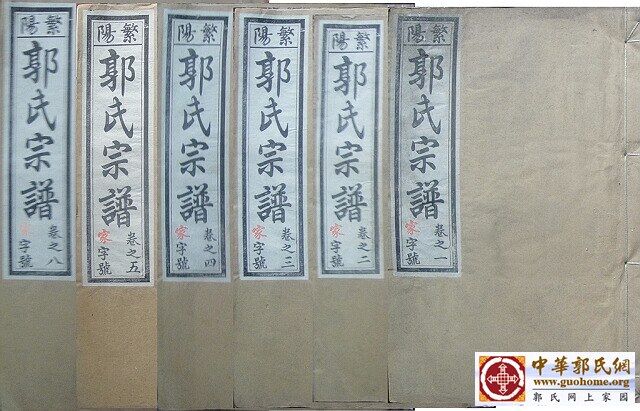 繁陽
郭氏宗譜
卷之一
家字號
繁陽
郭氏宗譜
卷之二
家字號
繁陽
郭氏宗譜
卷之三
家字號
繁陽
郭氏宗譜
卷之四
家字號
繁陽
郭氏宗譜
卷之五
家字號
繁陽
郭氏宗譜
卷之八
字號
中華郭氏網
www.guohome.org
郭氏网上家园